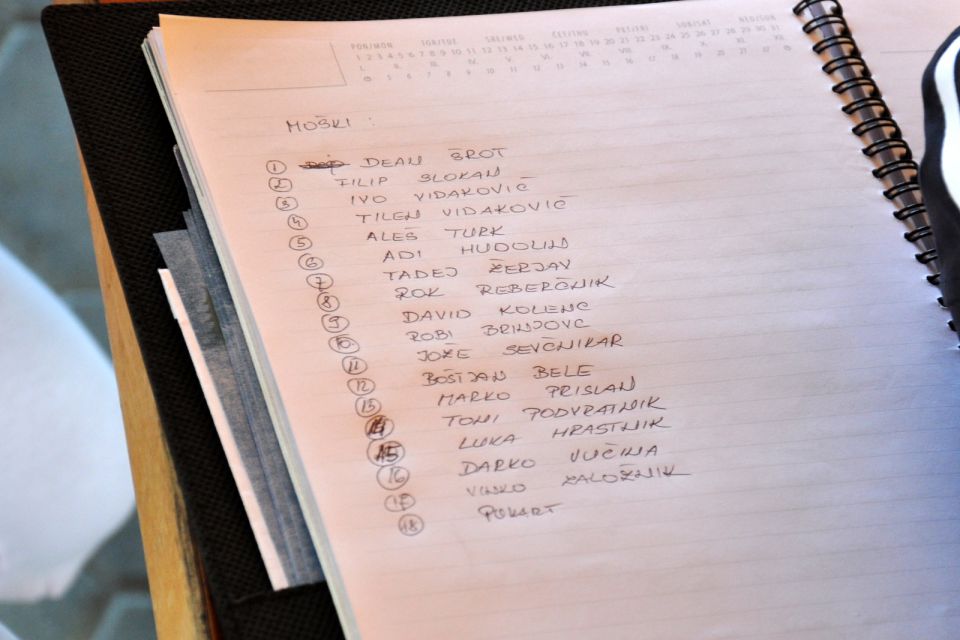 PON/MON TOR/TUE SRE/WED ČET/THU PET/FRI SOB/SAT NED/SUN
1 2 3 4 5 6 7 8 9 10 11 12 13 14 15 16 17 18 19 20 21 22 23 24 25 26 27 28 29 30 31
I. II. III. IV. V. VI. VII. VIII. IX. X. XI. XII.
MOŠKI :
1 DEAN ŠROT
2 FILIP SLOKAN
3 IVO VIDAKOVIČ
4 TILEN VIDAKOVIČ
5 ALEŠ TURK
6 ADI HUDOLIN
7 TADEJ ŽERJAV
8 ROK REBERČNIK
9 DAVID KOLENC
10 ROBI BRINJOVC
11 JOŽE SEVČNIKAR
12 BOŠTJAN BELE
13 MARKO PRISLAN
14 TONI PODVRATNIK
15 LUKA HRASTNIK
16 DARKO VUČINA
17 VINKO ZALOŽNIK
18